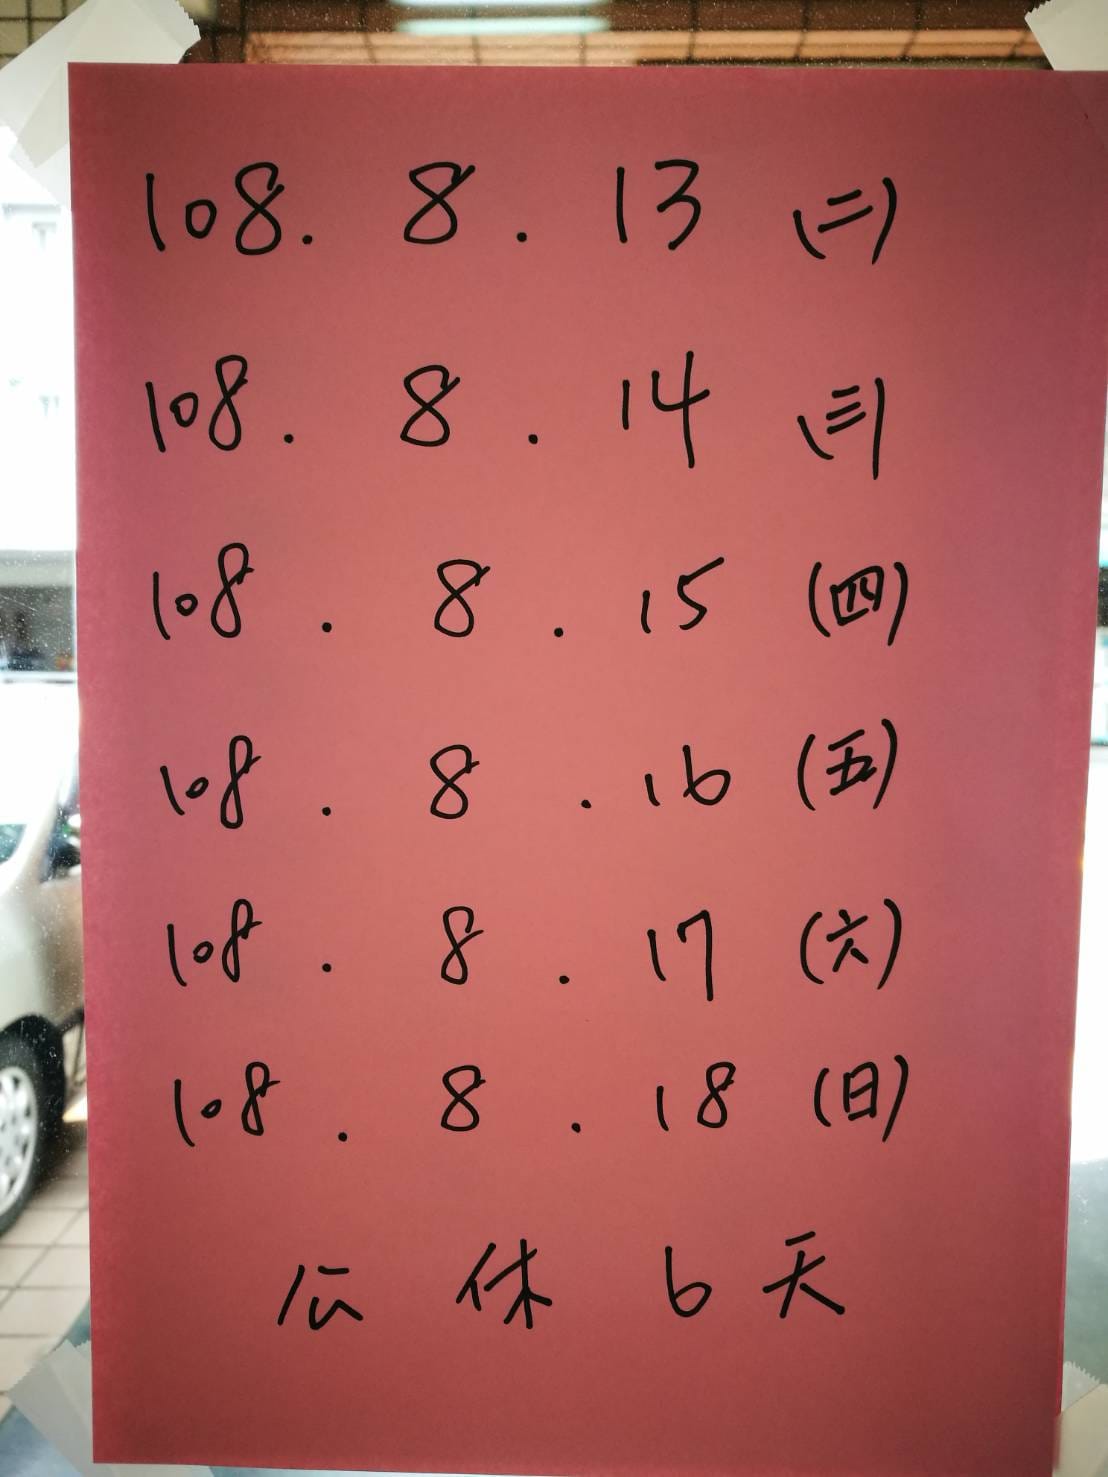 108. 8. 13 (二)
108. 8. 14 (三)
108. 8. 15 (四)
108. 8. 16 (五)
108. 8. 17 (六)
108. 8. 18 (日)
公休6天